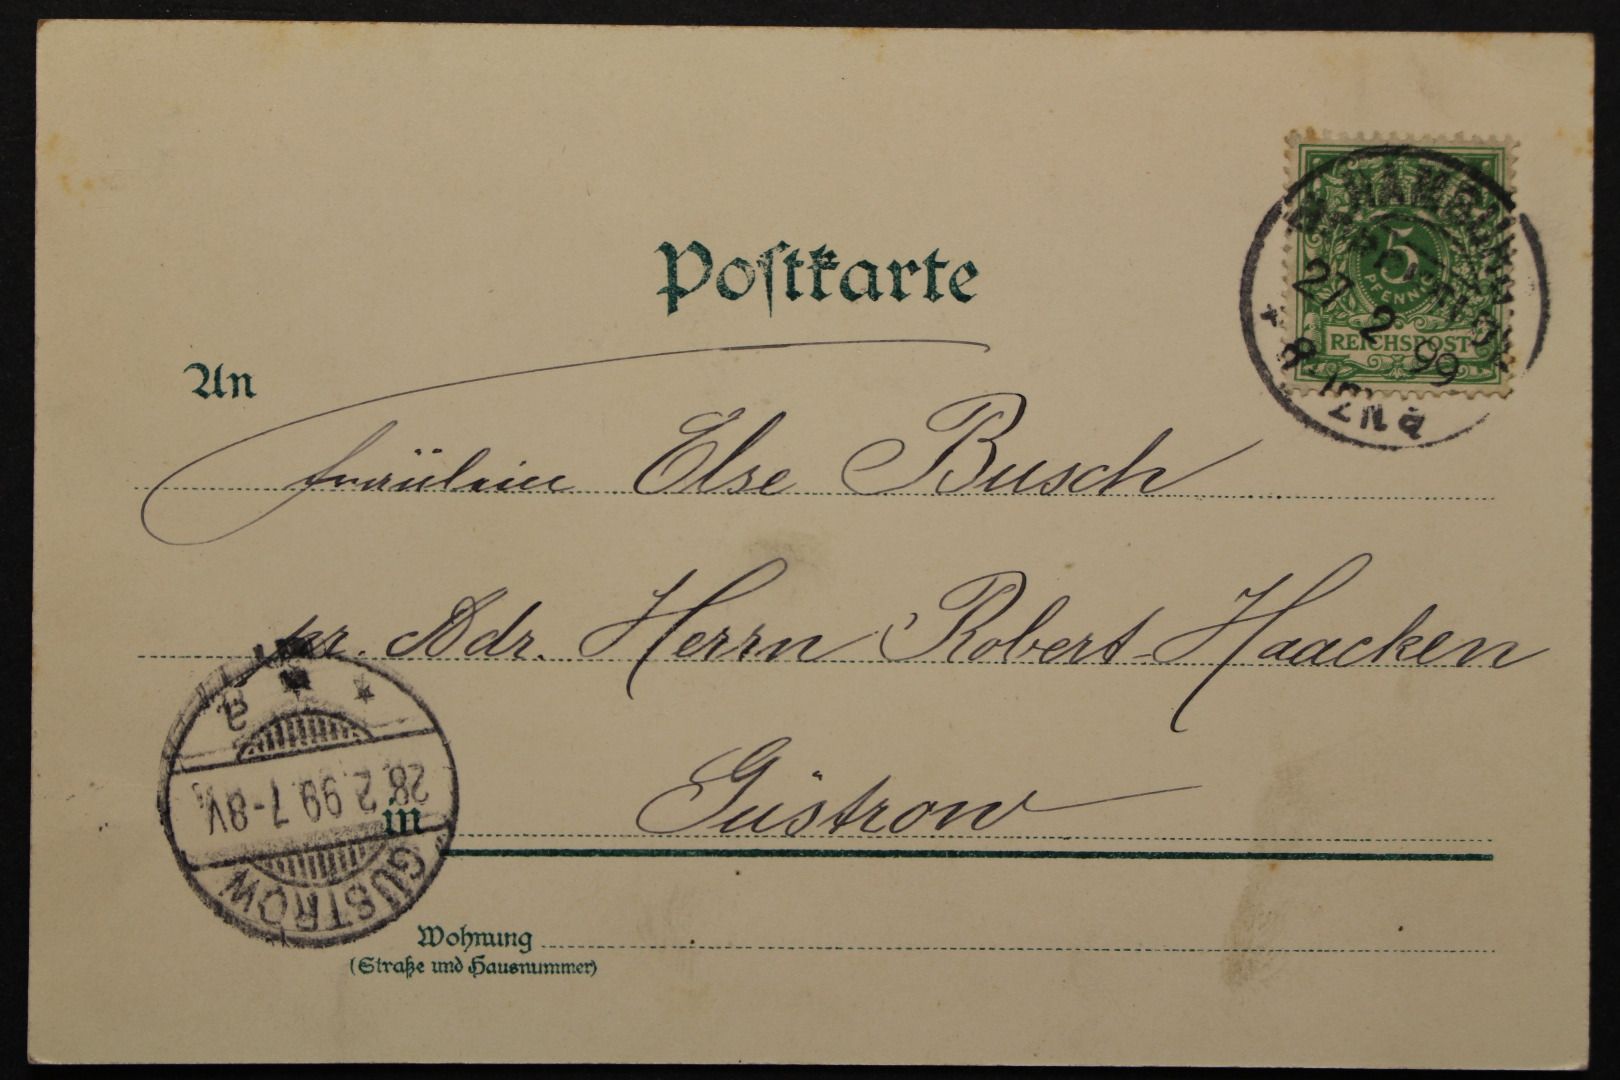 Postkarte
HAMBURG
27 2 99
8-9 N
5
PFENNIG
REICHSPOST
An
Fräulein Else Busch
pr. Adr. Herrn Robert Haacken
in Güstrow
GÜSTROW
28.2.99.7-8V.
Wohnung
(Straße und Hausnummer)